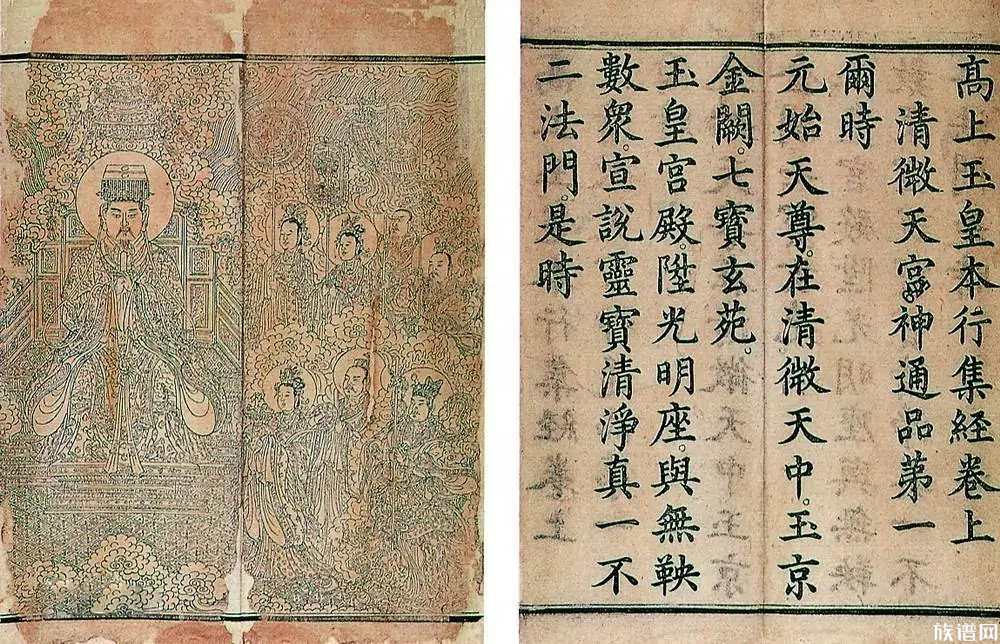 高上玉皇本行集經卷上
清微天宮。神通品第一
爾時
元始天尊。在清微天中。玉京
金闕。七寶玄苑。
玉皇宮殿。陞光明座。與無鞅
數衆。宣說靈寶清淨真一不
二法門。是時
族谱网